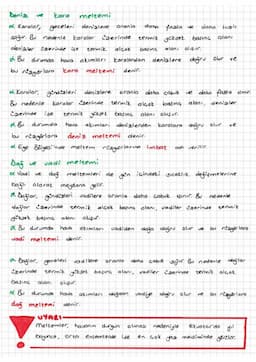 Deniz ve kara meltemi
Karalar, geceleri denizlere oranla daha fazla ve daha hızlı
soğur. Bu nedenle karalar üzerinde termik yüksek basınç alanı
denizler üzerinde ise termik alçak basınç alanı oluşur.
Bu durumda hava akımları karalardan denizlere doğru olur ve
bu rüzgarlara kara meltemi denir.
Karalar, gündüzleri denizlere oranla daha çabuk ve daha fazla ısınır.
Bu nedenle karalar üzerinde termik alçak basınç alanı, denizler
üzerinde ise termik yüksek basınç alanı oluşur.
Bu durumda hava akımları denizlerden karalara doğru olur ve
bu rüzgarlara deniz meltemi denir.
Ege Bölgesinde meltem rüzgarlarına imbat adı verilir.
Dağ ve vadi meltemi
Vadi ve dağ meltemleri de gün içindeki sıcaklık değişmelerine
bağlı olarak meydana gelir.
Dağlar, gündüzleri vadilere oranla daha çabuk ısınır. Bu nedenle
dağlar üzerinde termik alçak basınç alanı, vadiler üzerinde termik
yüksek basınç alanı oluşur.
Bu durumda hava akımları vadiden dağa doğru olur ve bu rüzgarlara
vadi meltemi denir.
Dağlar, geceleri vadilere oranla daha çabuk soğur. Bu nedenle dağlar
üzerinde termik yüksek basınç alanı, vadiler üzerinde termik alçak
basınç alanı oluşur.
Bu durumda hava akımları dağdan vadiye doğru olur ve bu rüzgarlara
dağ meltemi denir.
UYARI
Meltemler, havanın durgun olması nedeniyle Ekvatorda yıl
boyunca, orta enlemlerde ise en sık yaz mevsiminde görülür.